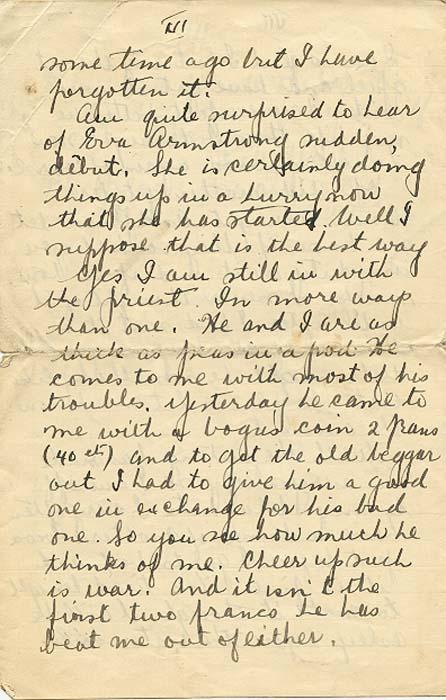 III
some time ago but I have
forgotten it.
Am quite surprised to hear
of Erva Armstrong sudden,
début. She is certainly doing
things up in a hurry now
that she has started. Well I
suppose that is the best way
Yes I am still in with
the priest. In more ways
than one. He and I are as
thick as peas in a pod He
comes to me with most of his
troubles. yesterday he came to
me with a bogus coin 2 frans
(40 cts) and to get the old beggar
out I had to give him a good
one in exchange for his bad
one. So you see how much he
thinks of me. Cheer up such
is war. And it isn't the
first two francs he has
beat me out of either.